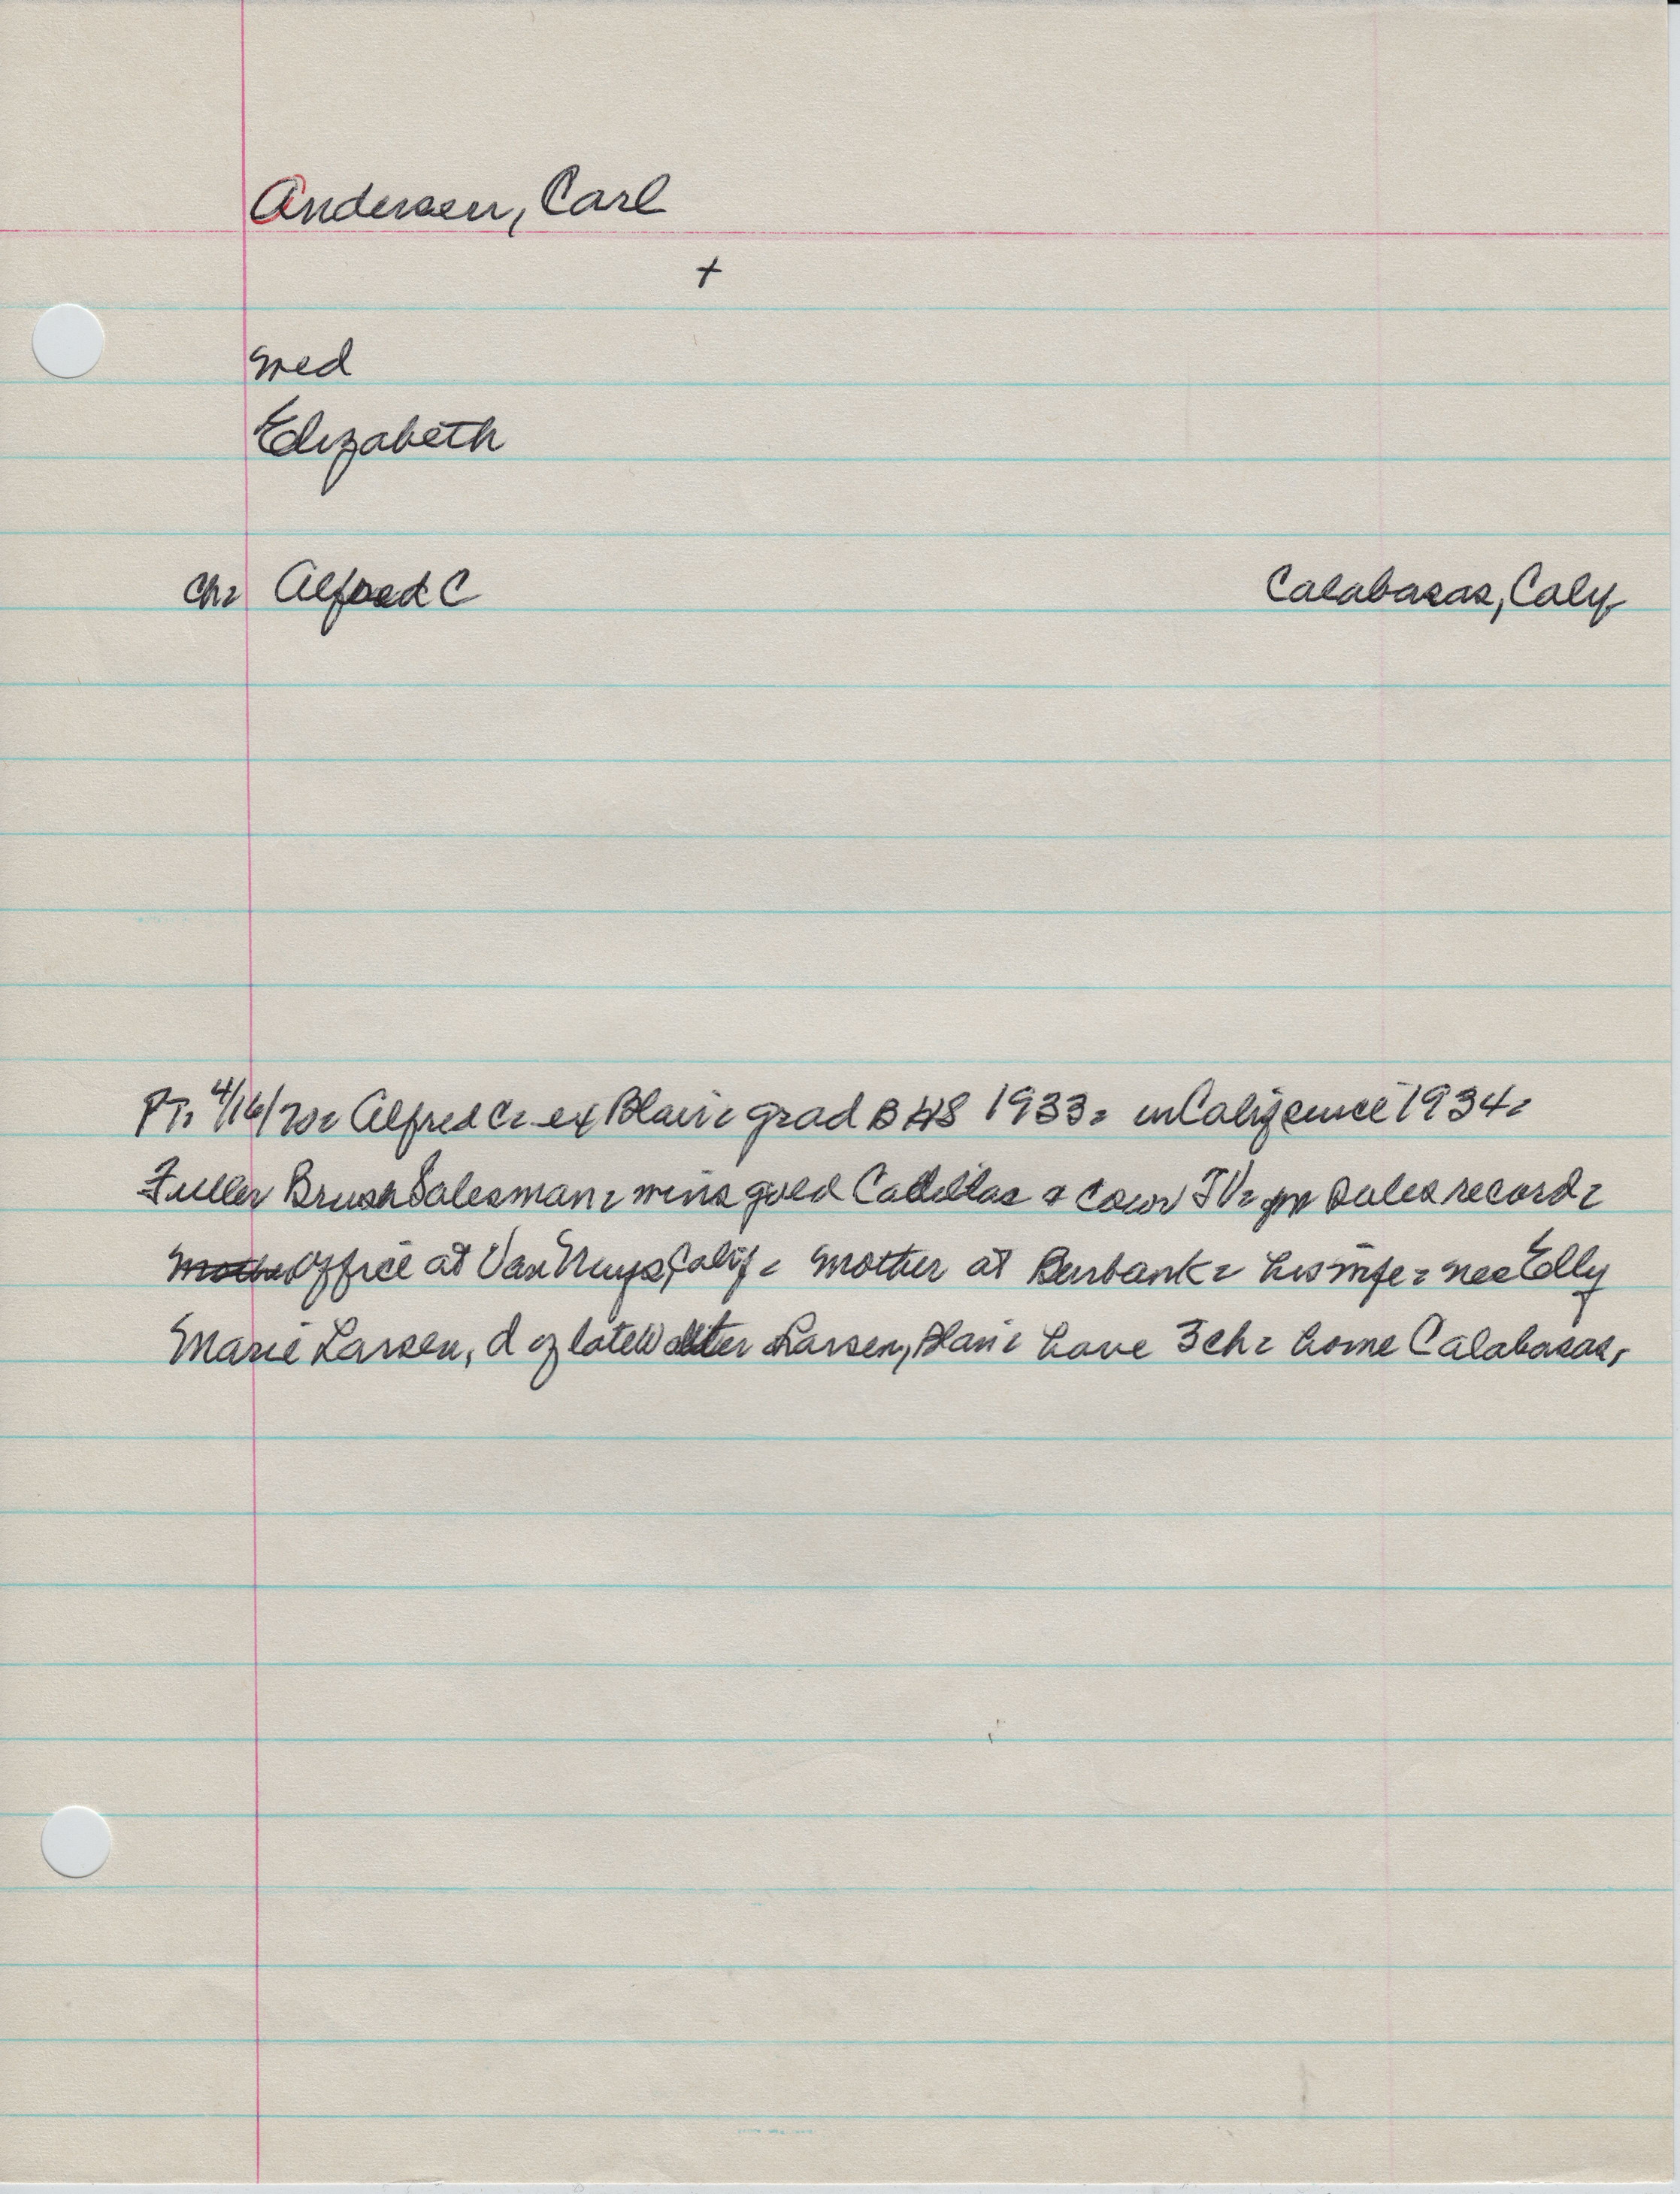 Andersen, Carl
+
med
Elizabeth
ch: Alfred C Calabasas, Calif
PT: 4/16/70: Alfred C: ex Blair: grad BHS 1933: in Calif since 1934:
Fuller Brush Salesman: wins gold Cadillac & color TV: for sales record:
Office at Van Nuys, Calif: mother at Burbank: his wife: nee Elly
Marie Larsen, d of late Walter Larsen, Blair: have 3 ch: home Calabasas,